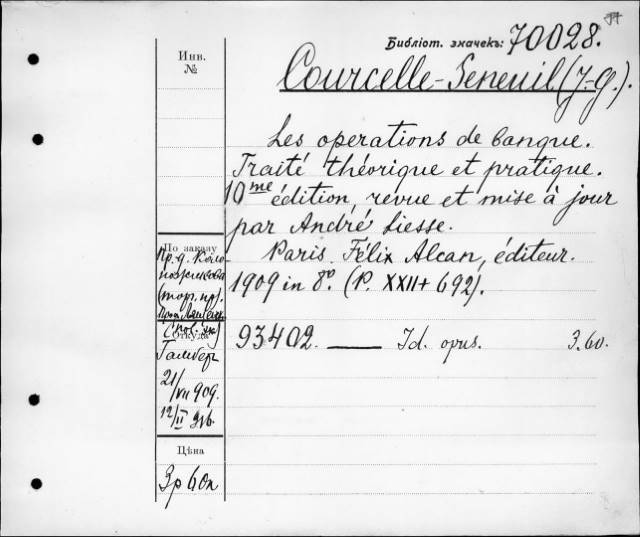 Библіот. значекъ: 70028.
Инв.
№
Courcelle-Seneuil (J-G.).
Les operations de banque.
Traité théorique et pratique.
10me édition, revue et mise à jour
par André Liesse.
Paris. Félix Alcan, éditeur.
1909 in 8º. (P. XXII+692).
По заказу
Пр. д.
(торг. пр).
Откуда
93402. — Id. opus. 3.60.
21/VII 909.
12/II
Цѣна
3р 60к